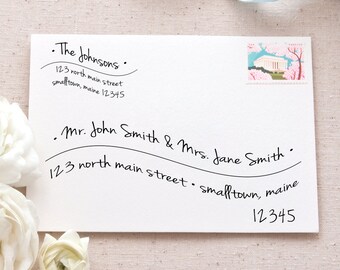 • The Johnsons •
123 north main street
smalltown, maine 12345
• Mr. John Smith & Mrs. Jane Smith •
123 north main street • smalltown, maine
12345